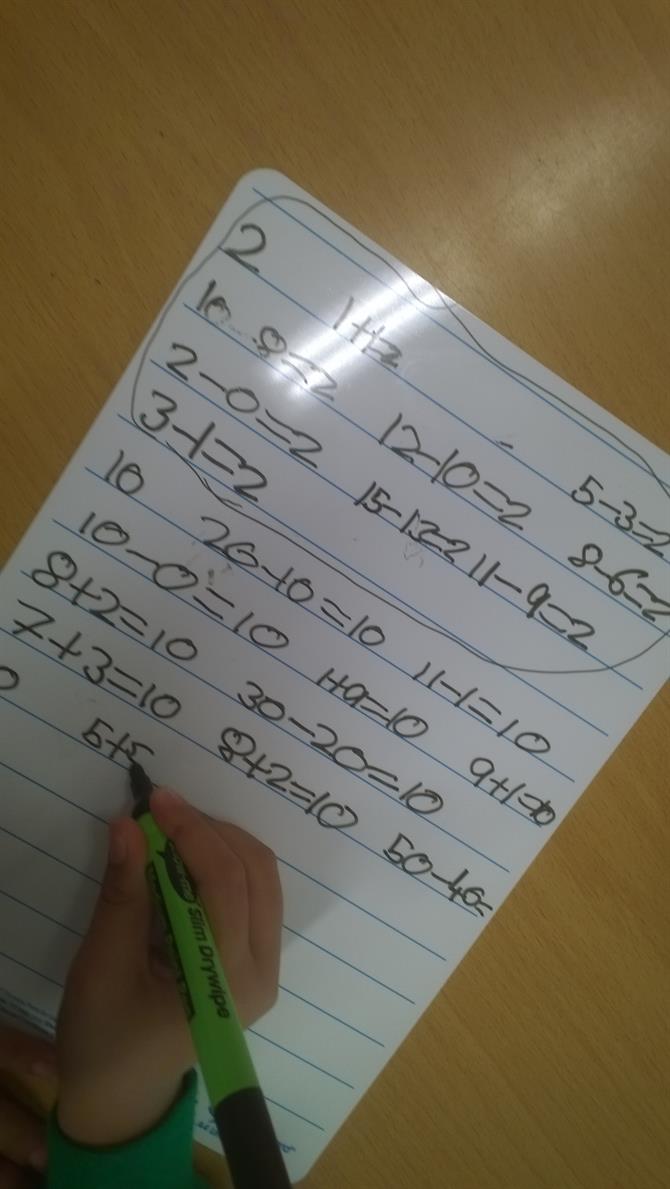 2
1+1=2
10-8=2
2-0=2 12-10=2 5-3=2
3-1=2 15-13=2 11-9=2 8-6=2
10
10-0=10 20-10=10 11-1=10
8+2=10 1+9=10 9+1=10
7+3=10 30-20=10
5+5 8+2=10 50-40=
Slim Drywipe